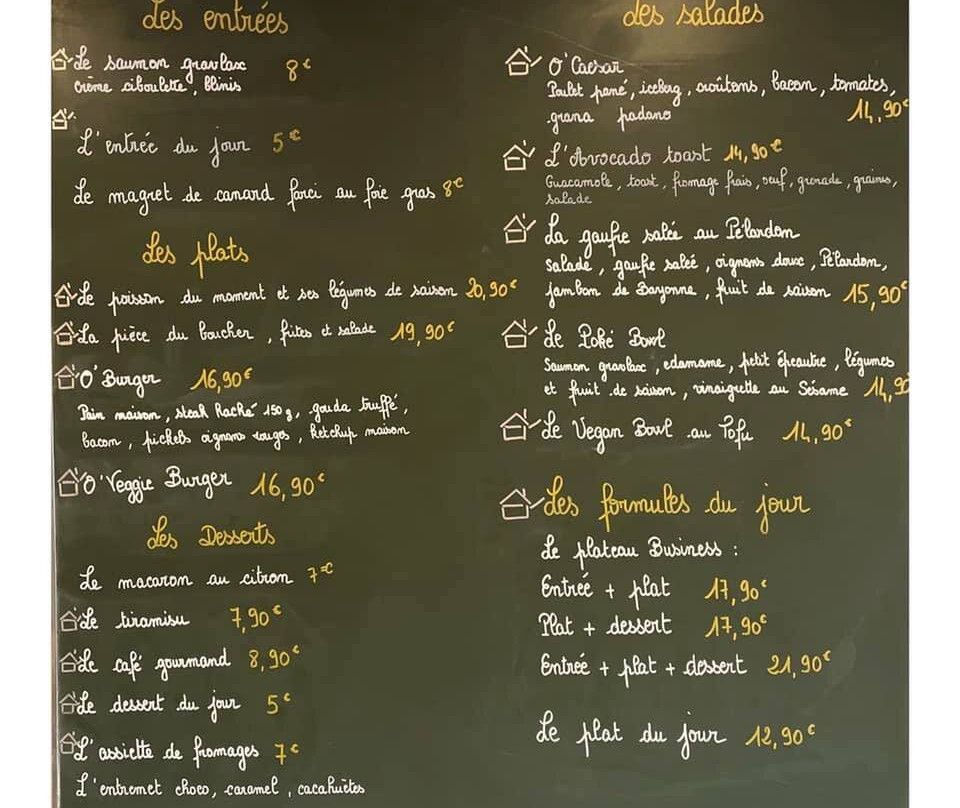 Les entrées
Le saumon gravlax 8€
crème ciboulette, blinis
L'entrée du jour 5€
Le magret de canard farci au foie gras 8€
Les plats
Le poisson du moment et ses légumes de saison 20,90€
La pièce du boucher, frites et salade 19,90€
O'Burger 16,90€
Pain maison, steak haché 150g, gouda truffé,
bacon, pickels oignons rouges, ketchup maison
O'Veggie Burger 16,90€
Les Desserts
Le macaron au citron 7€
Le tiramisu 7,90€
Le café gourmand 8,90€
Le dessert du jour 5€
L'assiette de fromages 7€
L'entremet choco, caramel, cacahuètes
des salades
O'Caesar
Poulet pané, iceberg, croûtons, bacon, tomates,
grana padano 14,90€
L'Avocado toast 14,90€
Guacamole, toast, fromage frais, oeuf, grenade, graines,
salade
La gaufre salée au Pélardon
salade, gaufre saleé, oignons doux, Pélardon,
jambon de Bayonne, fruit de saison 15,90€
Le Poké Bowl
Saumon gravlax, edamame, petit épeautre, légumes
et fruit de saison, vinaigrette au Sésame 14,90
Le Vegan Bowl au Tofu 14,90€
Les formules du jour
Le plateau Business :
Entrée + plat 17,90€
Plat + dessert 17,90€
Entrée + plat + dessert 21,90€
Le plat du jour 12,90€